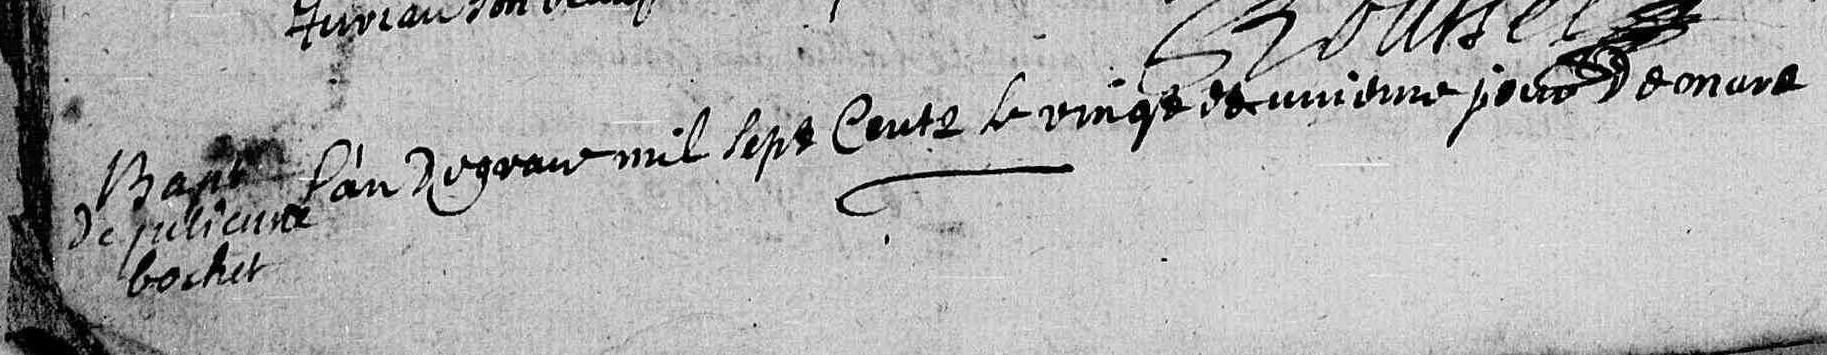 son
Roussel
L'an de grace mil sept Cents le vingt et unieme jour de mars
Bapt
de julienne
bochet